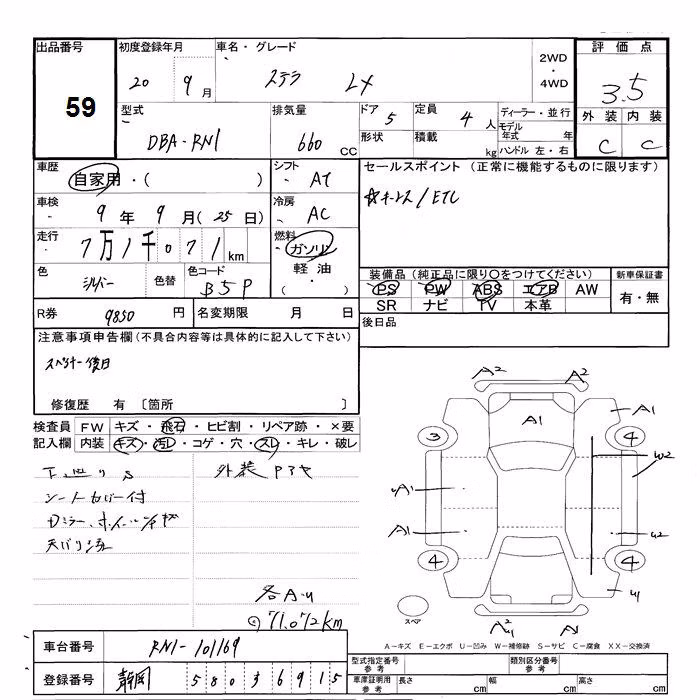 出品番号 初度登録年月 車名・グレード 2WD ・ 4WD 評価点
59 20 9月 ステラ LX 3.5
外装 内装
C C
型式 排気量 ドア 5 定員 4人 ディーラー・並行
DBA-RN1 660 CC 形状 積載 kg モデル年式 年
ハンドル 左・右
車歴 自家用・( ) シフト AT セールスポイント (正常に機能するものに限ります)
キーレス/ETC
車検 9年 9月(25日) 冷房 AC
走行 7万1千071km 燃料 ガソリン
軽油
色 シルバー 色替 色コード B5P
装備品 (純正品に限り○をつけてください) 新車保証書
PS PW ABS エアB AW 有・無
SR ナビ TV 本革
R券 9850円 名変期限 月 日 後日品
注意事項申告欄(不具合内容等は具体的に記入して下さい)
スペアキー後日
修復歴 有 〔箇所 〕
検査員 FW キズ・飛石・ヒビ割・リペア跡・×要
記入欄 内装 キズ・汚レ・コゲ・穴・スレ・キレ・破レ
シートカバー付
天バリ
外装
各A.U
71.072km
A2 A2
A1 A1
3 4
A1 W2
A1 W2
4 4
U1
スペア A1
A=キズ E=エクボ U=凹み W=補修跡 S=サビ C=腐食 XX=交換済
車台番号 RN1-101169
登録番号 静岡 580 3 6915
型式指定番号 参考 類別区分番号 参考
車庫証明用 参考 長さ cm 幅 cm 高さ cm